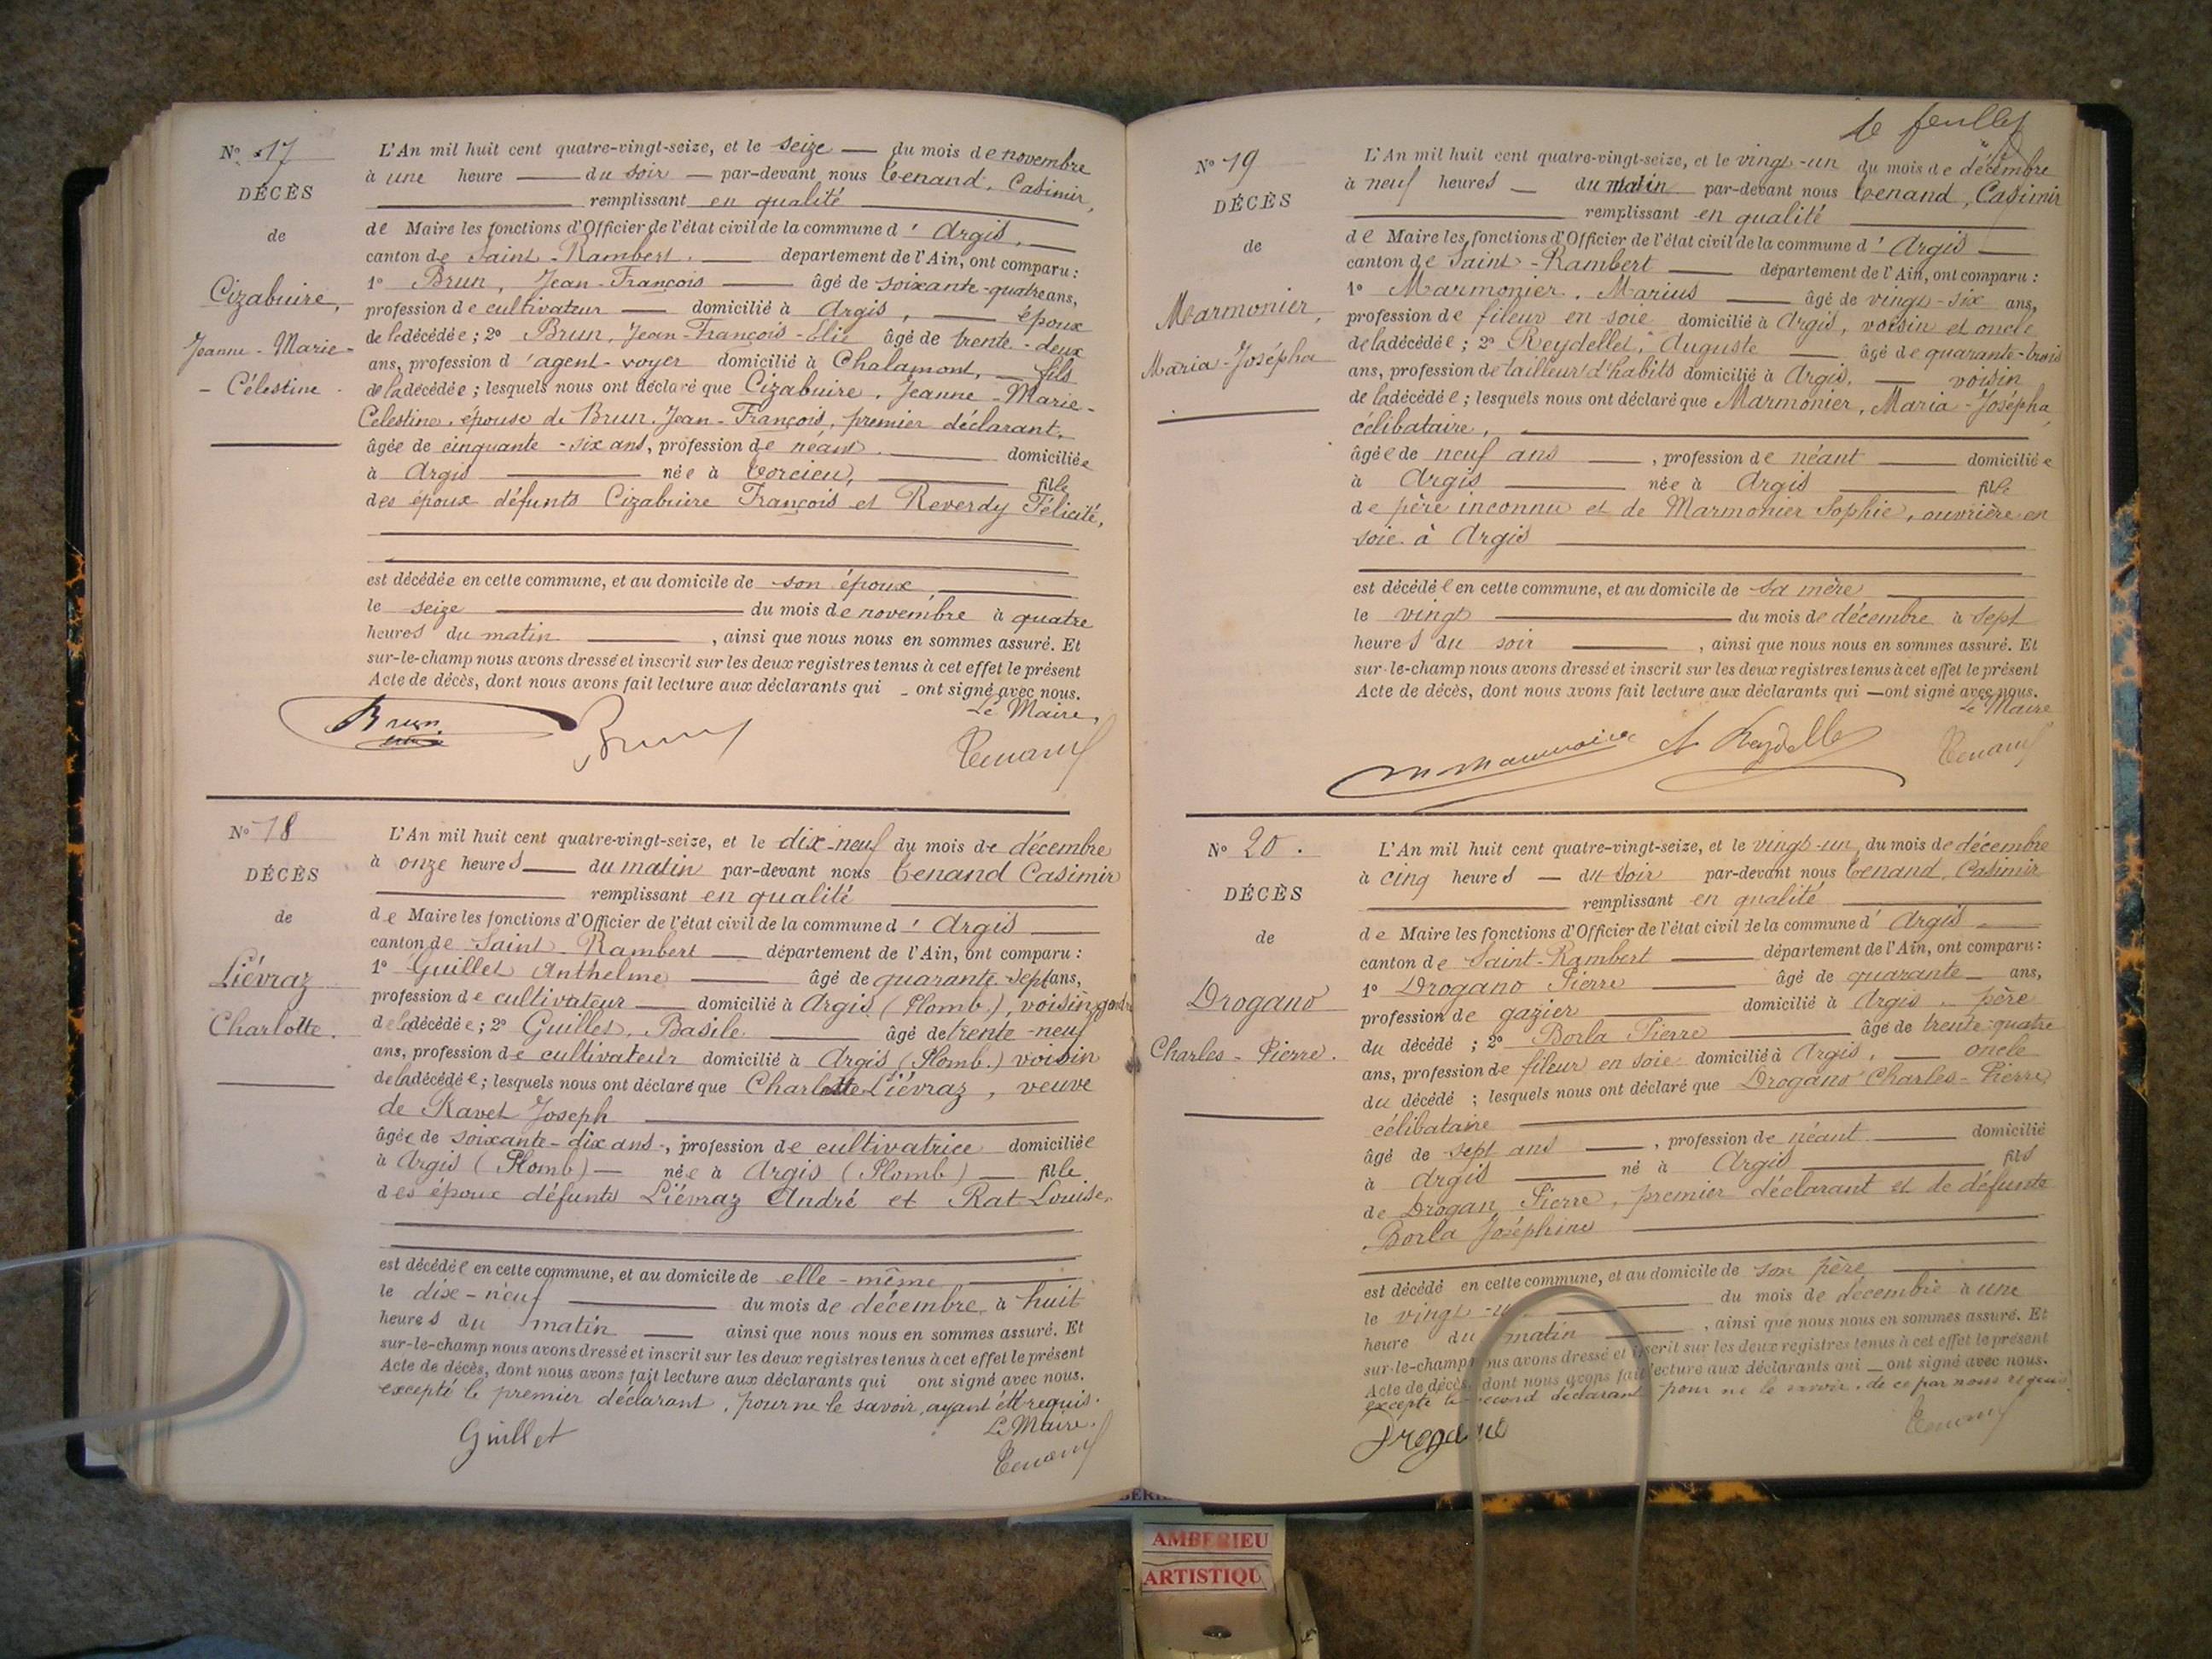 N° 17
DÉCÈS
de
Cizabuire,
Jeanne-Marie-
-Célestine.
L'An mil huit cent quatre-vingt-seize, et le seize du mois de novembre
à une heure du soir par-devant nous Tenand, Casimir,
remplissant en qualité
de Maire les fonctions d'Officier de l'état civil de la commune d'Argis,
canton de Saint-Rambert. département de l'Ain, ont comparu :
1° Brun, Jean-François âgé de soixante-quatre ans,
profession de cultivateur domicilié à Argis, époux
de la décédée ; 2° Brun, Jean-François-Elie âgé de trente-deux
ans, profession d'agent-voyer domicilié à Chalamont, fils
de la décédée ; lesquels nous ont déclaré que Cizabuire, Jeanne-Marie-
Célestine, épouse de Brun, Jean-François, premier déclarant,
âgée de cinquante-six ans, profession de néant. domiciliée
à Argis née à Torcieu, fille
des époux défunts Cizabuire François et Reverdy Félicité,
est décédée en cette commune, et au domicile de son époux
le seize du mois de novembre à quatre
heures du matin , ainsi que nous nous en sommes assuré. Et
sur-le-champ nous avons dressé et inscrit sur les deux registres tenus à cet effet le présent
Acte de décès, dont nous avons fait lecture aux déclarants qui ont signé avec nous.
Le Maire,
Brun Brun Tenand
N° 18
DÉCÈS
de
Liévraz
Charlotte.
L'An mil huit cent quatre-vingt-seize, et le dix-neuf du mois de décembre
à onze heures du matin par-devant nous Tenand Casimir
remplissant en qualité
de Maire les fonctions d'Officier de l'état civil de la commune d'Argis
canton de Saint-Rambert département de l'Ain, ont comparu :
1° Guillet Anthelme âgé de quarante-sept ans,
profession de cultivateur domicilié à Argis (Plomb.), voisin gendre
de la décédée ; 2° Guillet, Basile âgé de trente-neuf
ans, profession de cultivateur domicilié à Argis (Plomb.) voisin
de la décédée ; lesquels nous ont déclaré que Charlotte Liévraz, veuve
de Ravet Joseph
âgée de soixante-dix ans, profession de cultivatrice domiciliée
à Argis (Plomb) née à Argis (Plomb) fille
des époux défunts Liévraz André et Rat Louise,
est décédée en cette commune, et au domicile de elle-même
le dix-neuf du mois de décembre à huit
heures du matin ainsi que nous nous en sommes assuré. Et
sur-le-champ nous avons dressé et inscrit sur les deux registres tenus à cet effet le présent
Acte de décès, dont nous avons fait lecture aux déclarants qui ont signé avec nous.
excepté le premier déclarant, pour ne le savoir, ayant été requis.
Le Maire.
Guillet Tenand
10e feuillet
N° 19
DÉCÈS
de
Marmonier,
Maria-Josépha
L'An mil huit cent quatre-vingt-seize, et le vingt-un du mois de décembre
à neuf heures du matin par-devant nous Tenand, Casimir
remplissant en qualité
de Maire les fonctions d'Officier de l'état civil de la commune d'Argis
canton de Saint-Rambert département de l'Ain, ont comparu :
1° Marmonier, Marius âgé de vingt-six ans,
profession de fileur en soie domicilié à Argis, voisin et oncle
de la décédée ; 2° Reydellet, Auguste âgé de quarante-trois
ans, profession de tailleur d'habits domicilié à Argis, voisin
de la décédée ; lesquels nous ont déclaré que Marmonier, Maria-Josépha,
célibataire,
âgée de neuf ans , profession de néant domiciliée
à Argis née à Argis fille
de père inconnu et de Marmonier Sophie, ouvrière en
soie à Argis
est décédée en cette commune, et au domicile de sa mère
le vingt du mois de décembre à sept
heures du soir , ainsi que nous nous en sommes assuré. Et
sur-le-champ nous avons dressé et inscrit sur les deux registres tenus à cet effet le présent
Acte de décès, dont nous avons fait lecture aux déclarants qui ont signé avec nous.
Le Maire
A Reydellet Tenand
N° 20.
DÉCÈS
de
Drogano
Charles-Pierre.
L'An mil huit cent quatre-vingt-seize, et le vingt-un du mois de décembre
à cinq heures du soir par-devant nous Tenand, Casimir
remplissant en qualité
de Maire les fonctions d'Officier de l'état civil de la commune d'Argis
canton de Saint-Rambert département de l'Ain, ont comparu :
1° Drogano Pierre âgé de quarante ans,
profession de gazier domicilié à Argis, père
du décédé ; 2° Borla Pierre âgé de trente-quatre
ans, profession de fileur en soie domicilié à Argis, oncle
du décédé ; lesquels nous ont déclaré que Drogano Charles-Pierre
célibataire
âgé de sept ans , profession de néant domicilié
à Argis né à Argis fils
de Drogan Pierre, premier déclarant et de défunte
Borla Joséphine
est décédé en cette commune, et au domicile de son père
le vingt-un du mois de décembre à une
heure du matin , ainsi que nous nous en sommes assuré. Et
sur-le-champ nous avons dressé et inscrit sur les deux registres tenus à cet effet le présent
Acte de décès, dont nous avons fait lecture aux déclarants qui ont signé avec nous.
excepté le second déclarant pour ne le savoir, de ce par nous requis.
Drogano Tenand
AMBERIEU
ARTISTIQU